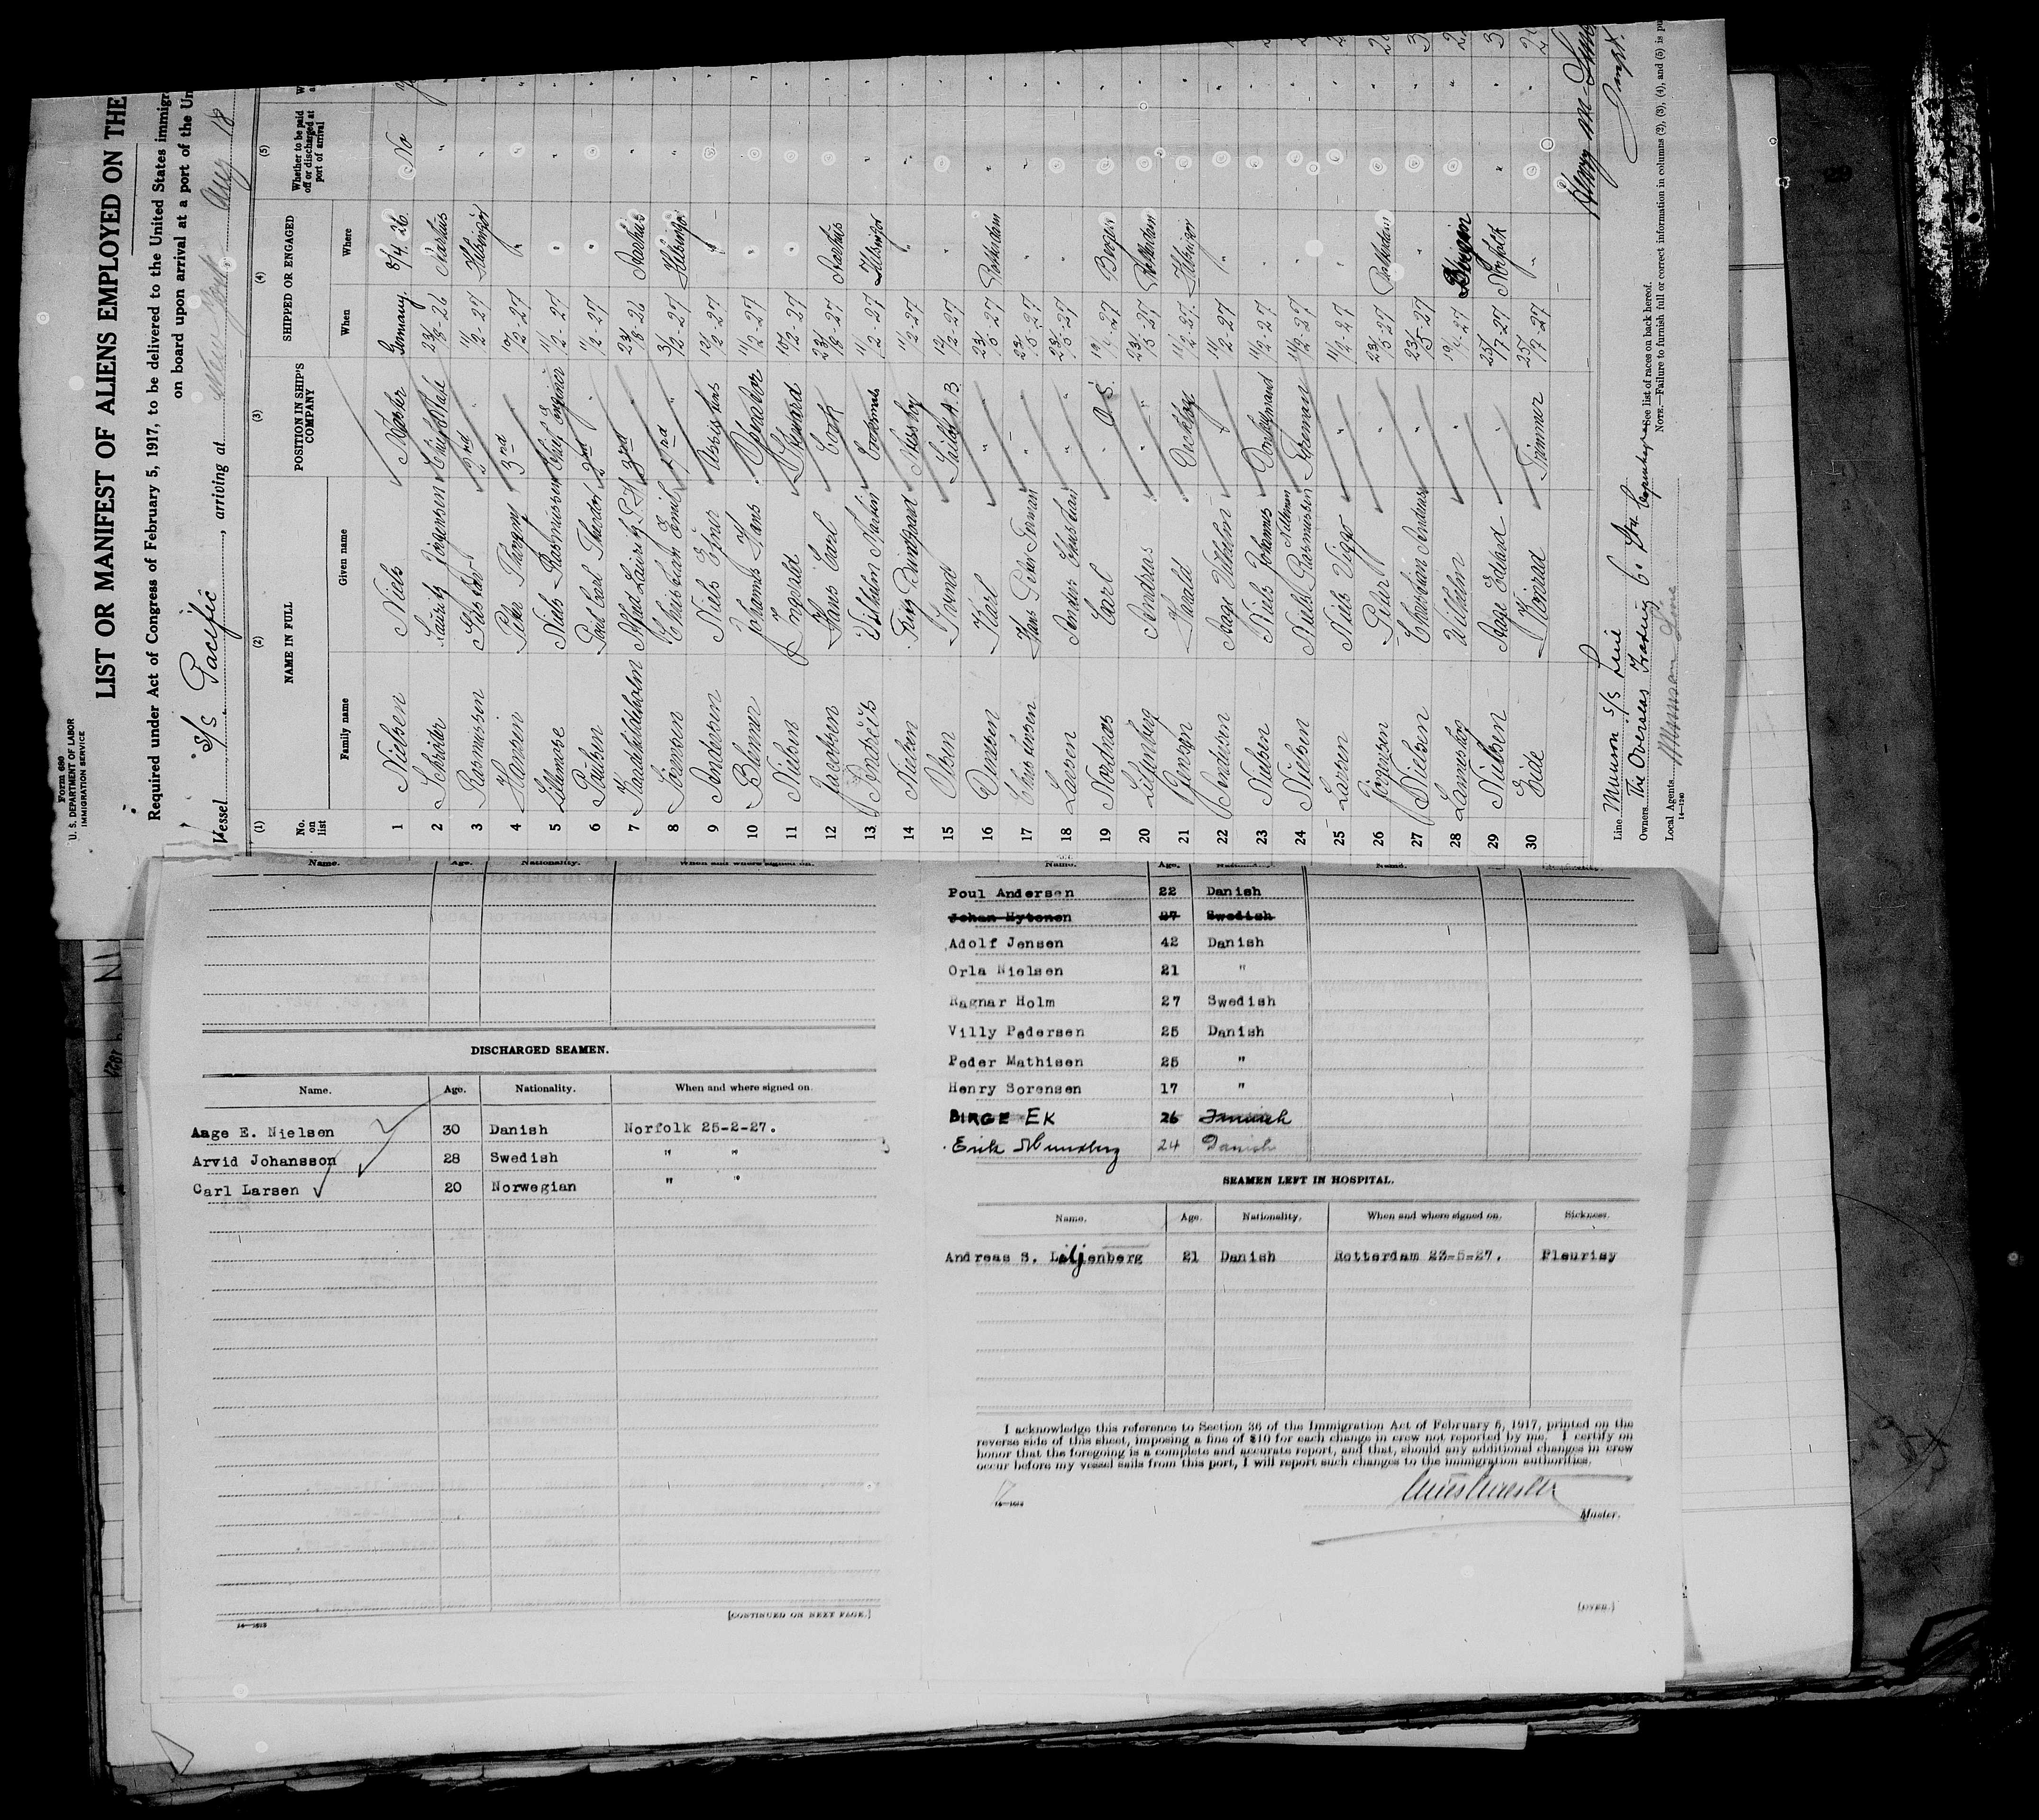 Form 689
U. S. DEPARTMENT OF LABOR
IMMIGRATION SERVICE
LIST OR MANIFEST OF ALIENS EMPLOYED ON THE
Required under Act of Congress of February 5, 1917, to be delivered to the United States immigra
on board upon arrival at a port of the Un
Vessel S/S Pacific, arriving at New York Aug 18
(1) (2) (3) (4) (5)
No. on list NAME IN FULL POSITION IN SHIP'S COMPANY SHIPPED OR ENGAGED Whether to be paid off or discharged at port of arrival
Family name Given name When Where
1 Nielsen Niels Master Germany. 8/4. 26. No
2 Schröder Lauritz Jörgensen Chief Mate 23/8-26 Aarhus "
3 Rasmussen 2nd " 11/2-27 Helsingör "
4 Hansen Peter Thorgny 3rd " 10/2-27 "
5 Lillemose Niels Rasmussen Chief Engineer 11/2-27 "
6 Poulsen Poul Carl Theodor 2nd " 11/2-27 "
7 Lauritz P. H. 3rd " 23/8-26 Aarhus
8 Sörensen Christian Emil 2nd " 3/12-27 Helsingör "
9 Andersen Niels Ejner Assistant 12/2-27 "
10 Blenner Johannes Hans Donkey 11/2-27 "
11 Nielsen Ingvald Steward 10/2-27 "
12 Jacobsen Hans Carl Cook 23/8-27 Aarhus
13 Vilhelm Martin Cooksmate 11/2-27 Helsingör "
14 Nielsen Messboy 11/2-27 "
15 Olsen Svend Sailor A. B. 12/2-27 "
16 Karl " 23/5-27 Rotterdam "
17 Christensen Hans Peter Herman " 23/5-27 "
18 Larsen Anders Christian " 23/5-27 "
19 Nordnæs Carl O. S. Bergen
20 Liljenberg Andreas " 23/5-27 Rotterdam
21 Jensen Harald Deckboy 11/2-27. Helsingör
22 Andersen Aage Vilhelm " 11/2-27 "
23 Nielsen Niels Johannes Donkeyman 11/2-27
24 Nielsen Niels Rasmussen Fireman 24/2-27
25 Larsen Niels Viggo " 11/2-27
26 Jörgensen Peter " 23/5-27 Rotterdam
27 Nielsen Christian Andreas " 23/5-27
28 Vilhelm "
29 Nielsen Aage Edvard " 25/7-27 Norfolk "
30 Eide Konrad Trimmer 25/7-27 "
Line Munson S/S Line
Owners The Overseas Trading Co. Ltd. Copenhagen See list of races on back hereof.
Local Agents Munson Line
NOTE.—Failure to furnish full or correct information in columns (2), (3), (4), and (5) is pu
14—1240
Name. Age. Nationality. When and where signed on.
DISCHARGED SEAMEN.
Name. Age. Nationality. When and where signed on.
Aage E. Nielsen 30 Danish Norfolk 25-2-27.
Arvid Johansson 28 Swedish " "
Carl Larsen 20 Norwegian " "
[CONTINUED ON NEXT PAGE.]
Name. Age. Name.
Poul Andersen 22 Danish
Johan Hytonen 27 Swedish
Adolf Jensen 42 Danish
Orla Nielsen 21 "
Ragnar Holm 27 Swedish
Villy Pedersen 25 Danish
Peder Mathisen 25 "
Henry Sorensen 17 "
BIRGE EK 26
Erik 24 Danish
SEAMEN LEFT IN HOSPITAL.
Name. Age. Nationality. When and where signed on. Sickness.
Andreas S. Liljenberg 21 Danish Rotterdam 23-5-27. Pleurisy
I acknowledge this reference to Section 36 of the Immigration Act of February 5, 1917, printed on the
reverse side of this sheet, imposing a fine of $10 for each change in crew not reported by me. I certify on
honor that the foregoing is a complete and accurate report, and that, should any additional changes in crew
occur before my vessel sails from this port, I will report such changes to the immigration authorities.
Master.
(OVER.)